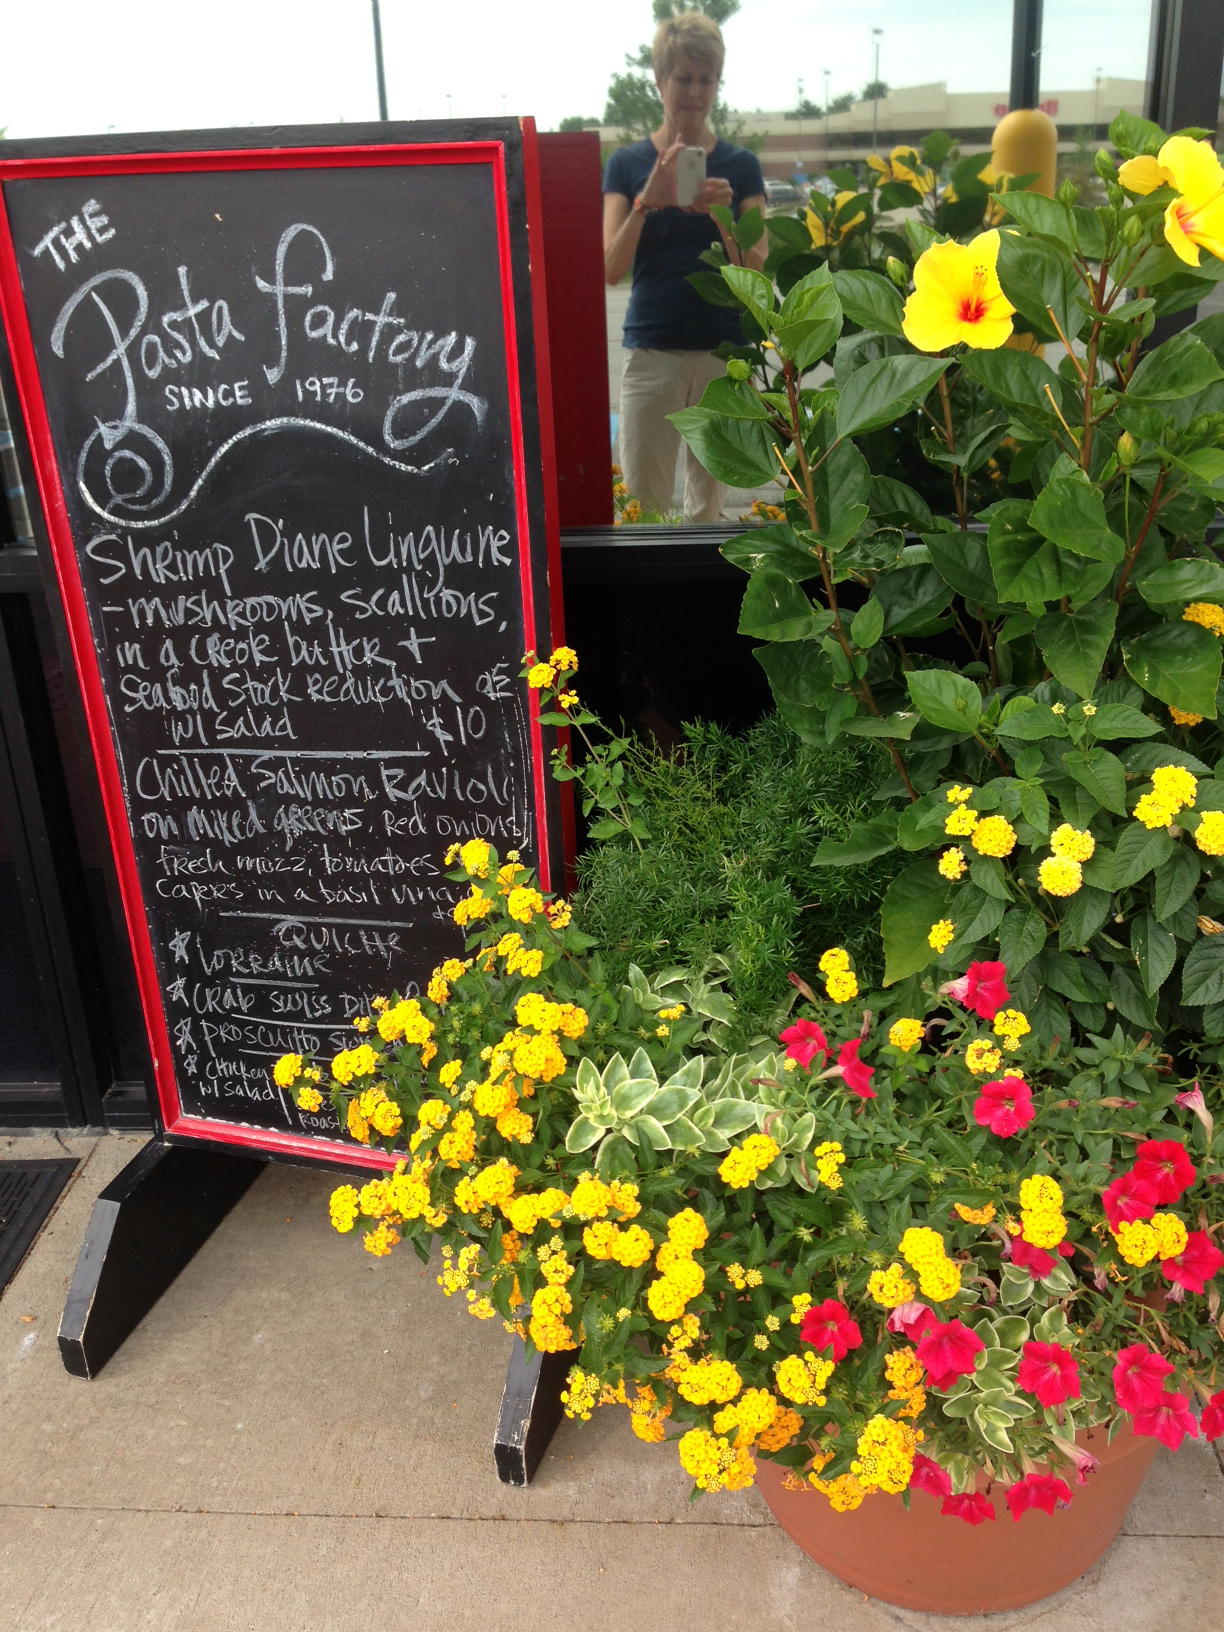 THE
Pasta Factory
SINCE 1976
Shrimp Diane Linguine
- mushrooms, scallions,
in a creole butter +
Seafood Stock Reduction
w/ Salad $10
Chilled Salmon Ravioli
on mixed greens, Red onions,
fresh mozz, tomatoes
Capers in a basil
QUICHE
* Lorraine
* Crab Swiss
* Proscuitto
* Chicken
w/ Salad